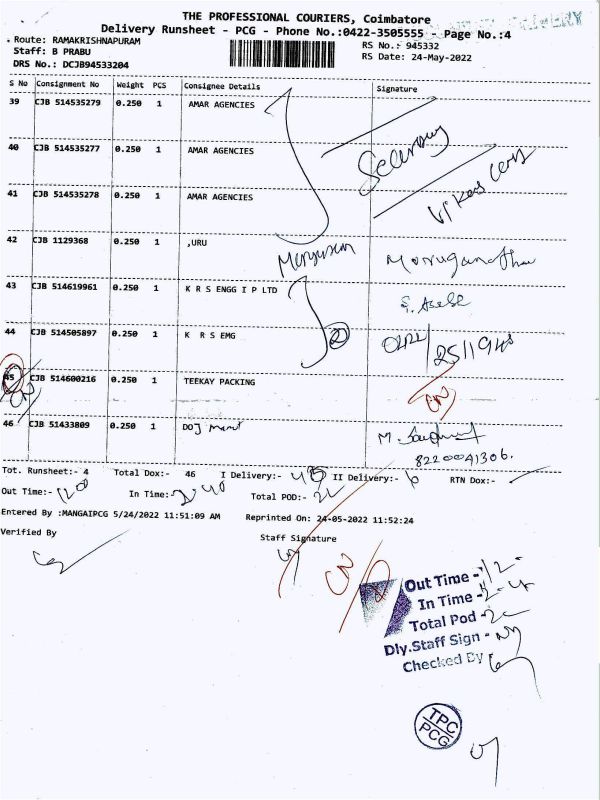 THE PROFESSIONAL COURIERS, Coimbatore
Delivery Runsheet - PCG - Phone No.:0422-3505555 - Page No.:4
Route: RAMAKRISHNAPURAM
RS No.: 945332
Staff: B PRABU
RS Date: 24-May-2022
DRS No.: DCJB94533204
S No Consignment No Weight PCS Consignee Details Signature
39 CJB 514535279 0.250 1 AMAR AGENCIES
40 CJB 514535277 0.250 1 AMAR AGENCIES
41 CJB 514535278 0.250 1 AMAR AGENCIES
42 CJB 1129368 0.250 1 ,URU
43 CJB 514619961 0.250 1 K R S ENGG I P LTD
44 CJB 514505897 0.250 1 K R S EMG 2
45 CJB 514600216 0.250 1 TEEKAY PACKING CN
46 CJB 51433809 0.250 1 DOJ
8220041306.
Tot. Runsheet:- 4 Total Dox:- 46 I Delivery:- II Delivery:- RTN Dox:-
Out Time:- In Time:- Total POD:-
Entered By :MANGAIPCG 5/24/2022 11:51:09 AM Reprinted On: 24-05-2022 11:52:24
Verified By Staff Signature
CN
Out Time -
In Time -
Total Pod -
Dly.Staff Sign -
Checked By
TPC
PCG